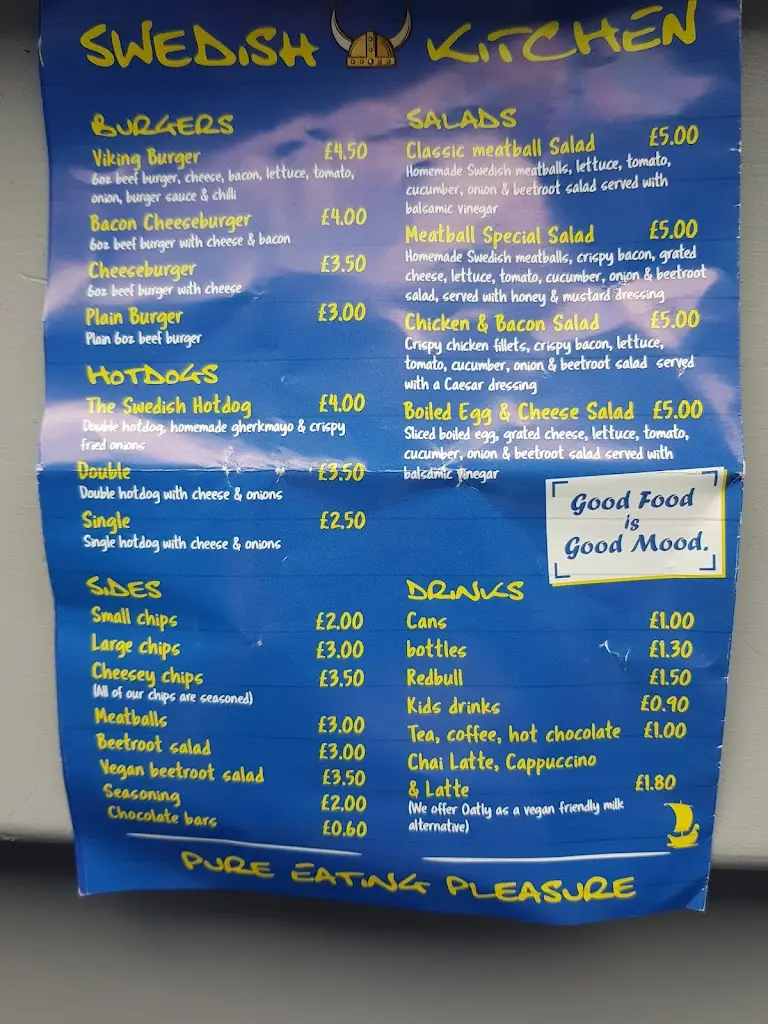 SWEDISH KITCHEN
BURGERS
Viking Burger £4.50
6oz beef burger, cheese, bacon, lettuce, tomato,
onion, burger sauce & chilli
Bacon Cheeseburger £4.00
6oz beef burger with cheese & bacon
Cheeseburger £3.50
6oz beef burger with cheese
Plain Burger £3.00
Plain 6oz beef burger
HOTDOGS
The Swedish Hotdog £4.00
Double hotdog, homemade gherkmayo & crispy
fried onions
Double £3.50
Double hotdog with cheese & onions
Single £2.50
Single hotdog with cheese & onions
SIDES
Small chips £2.00
Large chips £3.00
Cheesey chips £3.50
(All of our chips are seasoned)
Meatballs £3.00
Beetroot salad £3.00
Vegan beetroot salad £3.50
Seasoning £2.00
Chocolate bars £0.60
SALADS
Classic meatball Salad £5.00
Homemade Swedish meatballs, lettuce, tomato,
cucumber, onion & beetroot salad served with
balsamic vinegar
Meatball Special Salad £5.00
Homemade Swedish meatballs, crispy bacon, grated
cheese, lettuce, tomato, cucumber, onion & beetroot
salad, served with honey & mustard dressing
Chicken & Bacon Salad £5.00
Crispy chicken fillets, crispy bacon, lettuce,
tomato, cucumber, onion & beetroot salad served
with a Caesar dressing
Boiled Egg & Cheese Salad £5.00
Sliced boiled egg, grated cheese, lettuce, tomato,
cucumber, onion & beetroot salad served with
balsamic vinegar
Good Food
is
Good Mood.
DRINKS
Cans £1.00
bottles £1.30
Redbull £1.50
Kids drinks £0.90
Tea, coffee, hot chocolate £1.00
Chai Latte, Cappuccino
& Latte £1.80
(We offer Oatly as a vegan friendly milk
alternative)
PURE EATING PLEASURE